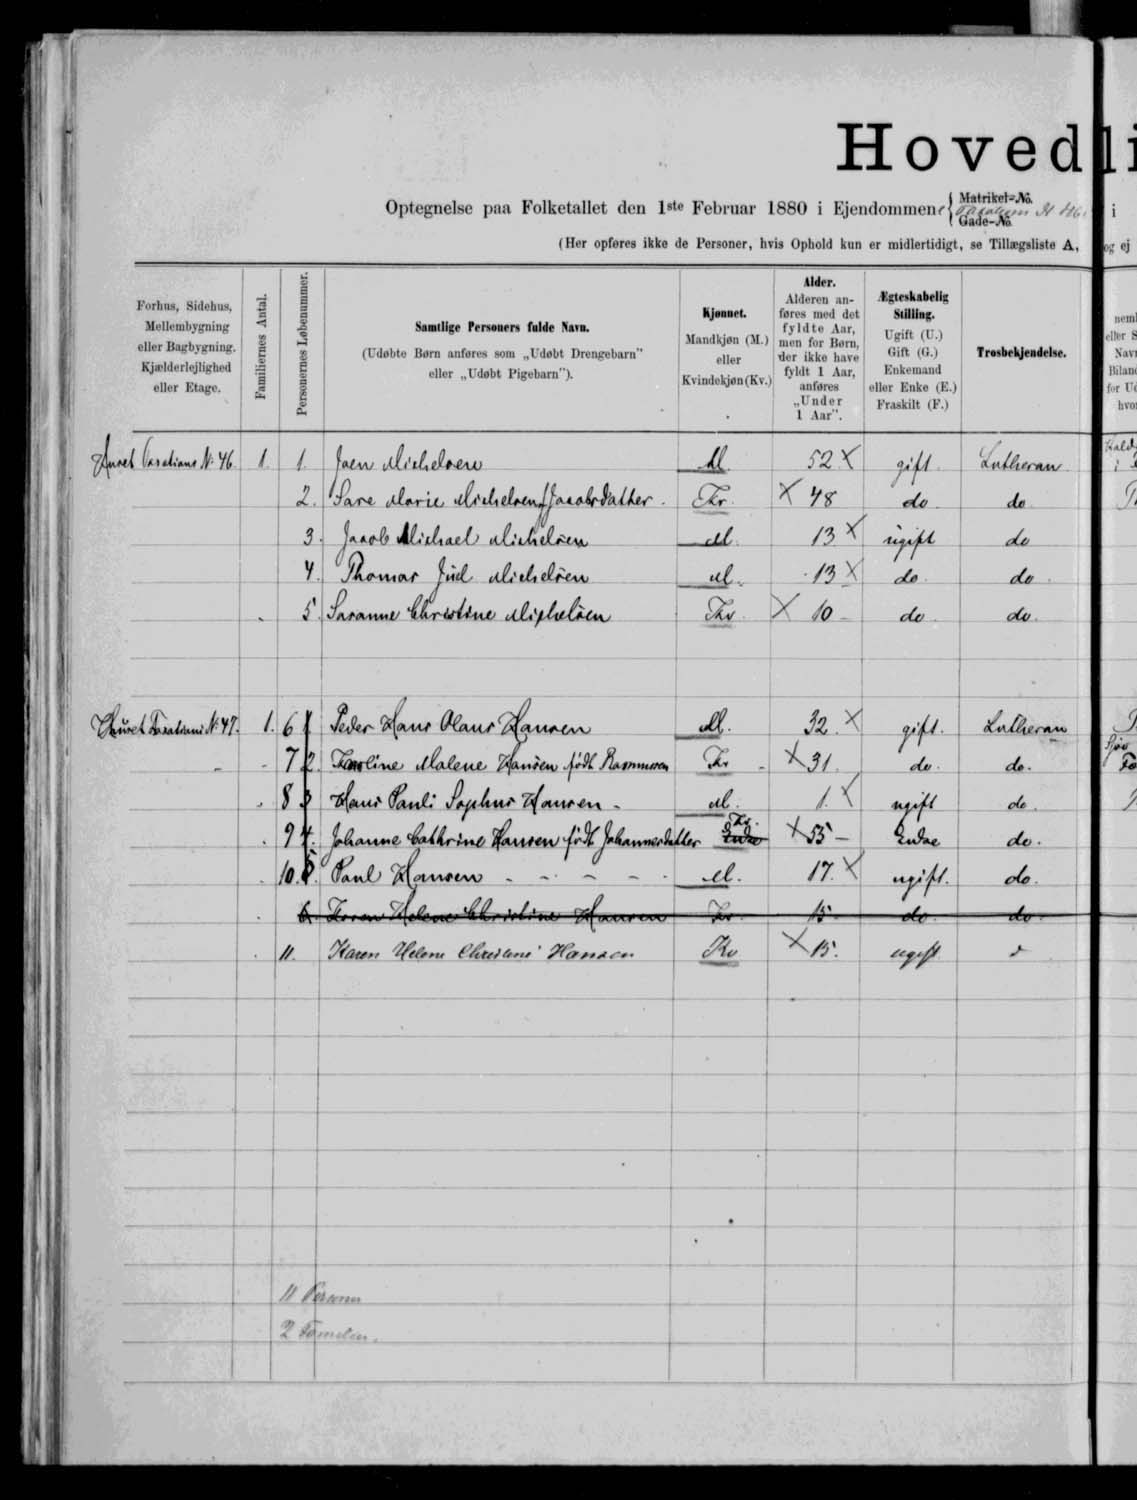 Hovedli
Optegnelse paa Folketallet den 1ste Februar 1880 i Ejendommene { Matrikel-No. Gade-No. i
(Her opføres ikke de Personer, hvis Ophold kun er midlertidigt, se Tillægsliste A, og ej
Forhus, Sidehus, Mellembygning eller Bagbygning. Kjælderlejlighed eller Etage.
Familiernes Antal.
Personernes Løbenummer.
Samtlige Personers fulde Navn.
(Udøbte Børn anføres som „Udøbt Drengebarn" eller „Udøbt Pigebarn").
Kjønnet. Mandkjøn (M.) eller Kvindekjøn (Kv.)
Alder. Alderen anføres med det fyldte Aar, men for Børn, der ikke have fyldt 1 Aar, anføres „Under 1 Aar".
Ægteskabelig Stilling. Ugift (U.) Gift (G.) Enkemand eller Enke (E.) Fraskilt (F.)
Trosbekjendelse.
Huset Taxations No 46. 1. 1. Joen Michelsen M. 52 X gift Lutheran
2. Sare Marie Michelsen f. Jacobsdatter. Kv. X 48 do do
3. Jacob Michael Michelsen M. 13 X ugift do
4. Thomas Juel Michelsen M. 13 X do. do.
5. Sasanne Christine Michelsen Kv. X 10 do do.
Huset Taxations No 47. 1. 6 1 Peder Hans Olaus Hansen M. 32. X gift. Lutheran
7 2. Karoline Malene Hansen født Rasmussen Kv X 31. do. do.
8 3 Hans Pauli Sophus Hansen M. 1. X ugift do.
9 4. Johanne Cathrine Hansen født Johannesdatter Enke Kv. X 55 Enke do.
10. 5. Paul Hansen M. 17. X ugift. do.
6. Karen Helene Christine Hansen Kv. 15 do do
11. Karen Helene Christine Hansen Kv X 15. ugift
11 Personer
2 Familier.